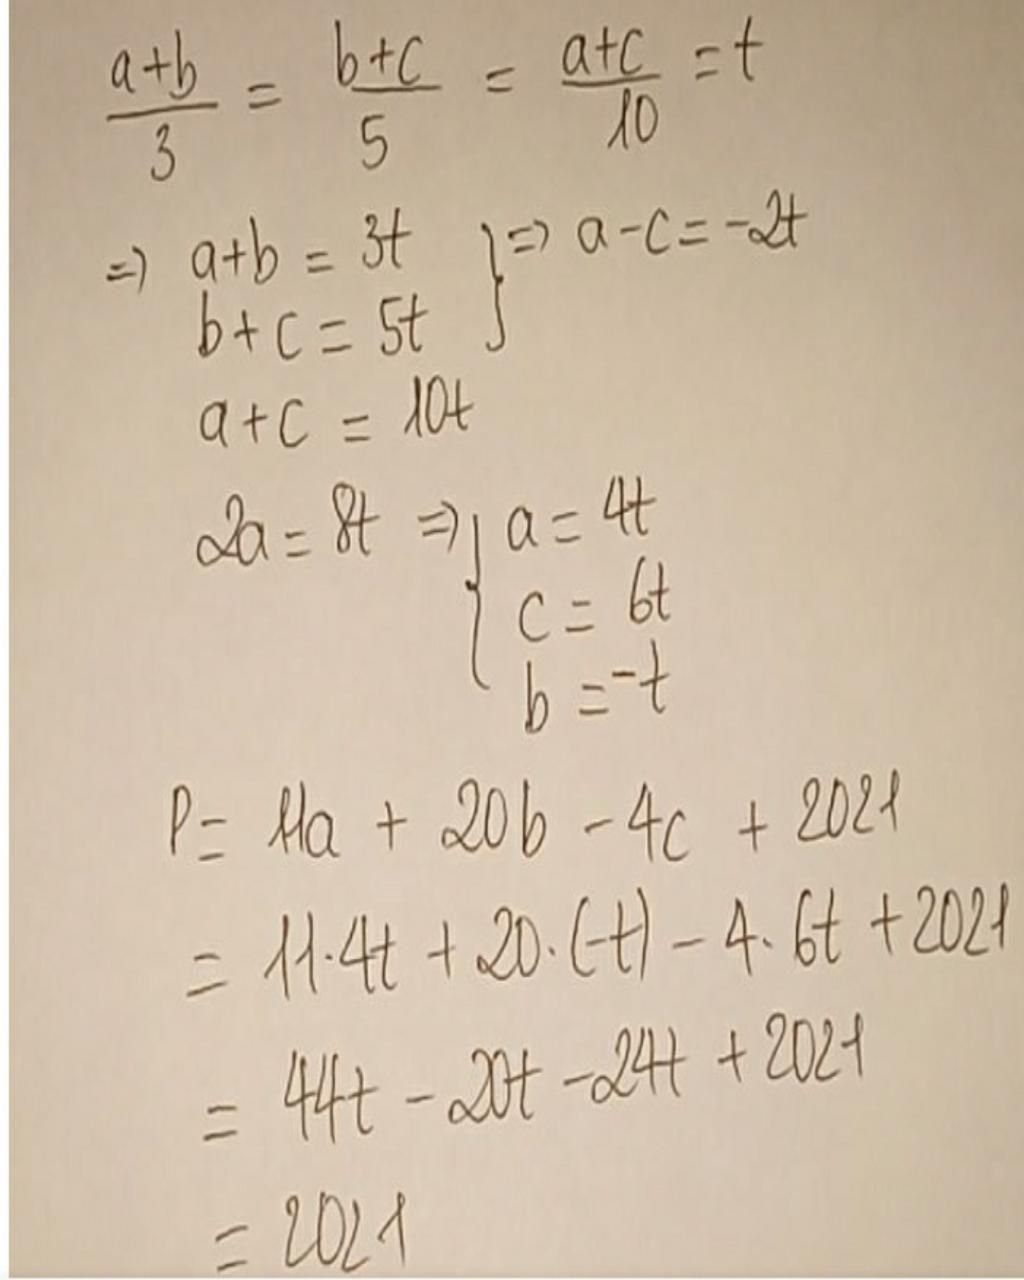 a+b/3 = b+c/5 = a+c/10 = t
=> a+b = 3t } => a-c = -2t
b+c = 5t
a+c = 10t
2a = 8t => { a = 4t
c = 6t
b = -t
P = 11a + 20b - 4c + 2021
= 11·4t + 20·(-t) - 4·6t + 2021
= 44t - 20t - 24t + 2021
= 2021